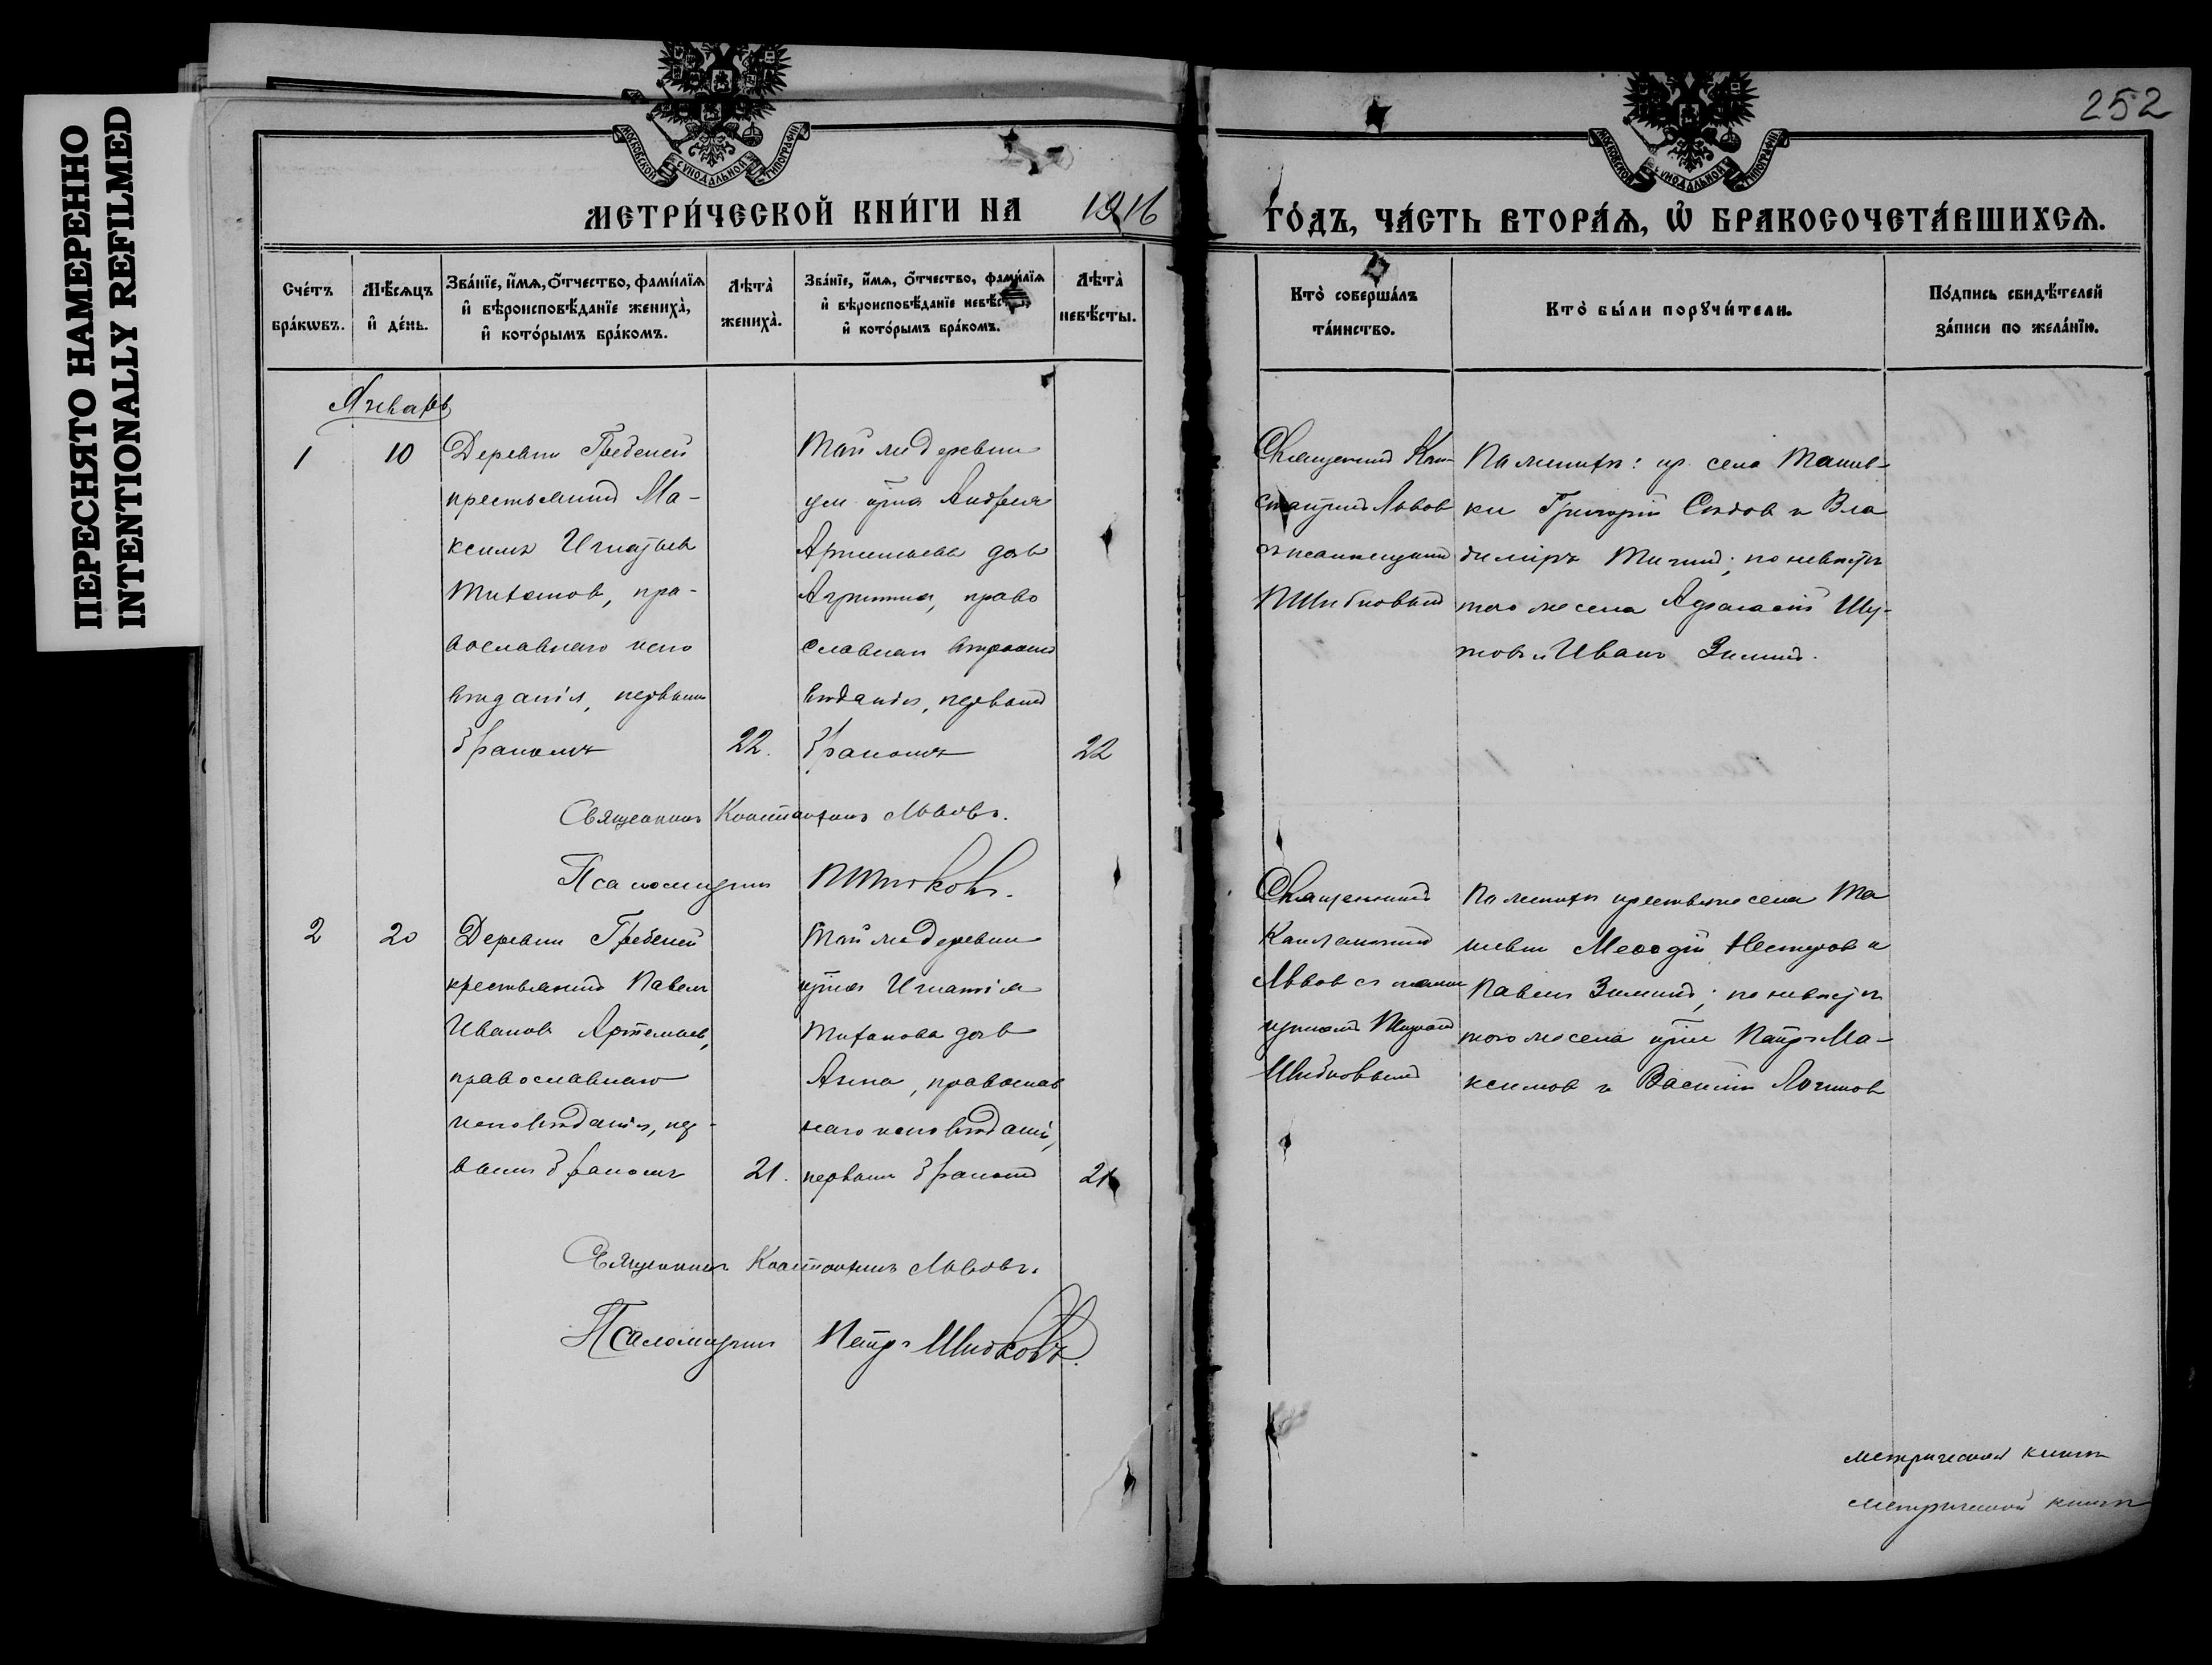 ПЕРЕСНЯТО НАМЕРЕННО
INTENTIONALLY REFILMED
252
МОСКОВСКОЙ СѴНОДАЛЬНОЙ ТИПОГРАФІИ
МОСКОВСКОЙ СѴНОДАЛЬНОЙ ТИПОГРАФІИ
МЕТРИ́ЧЕСКОЙ КНИ́ГИ НА 1916
ГО́ДЪ, ЧА́СТЬ ВТОРА́Ѧ, Ѽ БРАКОСОЧЕТА́ВШИХСѦ.
Сче́тъ бра́кѡвъ.
Мѣ́сѧцъ и҆ де́нь.
Зва́нїе, и҆́мѧ, о҆́тчество, фами́лїѧ
и҆ вѣроисповѣ́данїе жениха̀,
и҆ кото́рымъ бра́комъ.
Лѣта̀ жениха̀.
Зва́нїе, и҆́мѧ, о҆́тчество, фами́лїѧ
и҆ вѣроисповѣ́данїе невѣ́сты,
и҆ кото́рымъ бра́комъ.
Лѣта̀ невѣ́сты.
Кто̀ соверша́лъ та́инство.
Кто̀ бы́ли порꙋчи́тели.
По́дпись свидѣ́телей за́писи по жела́нїю.
Январь
1
10
Деревни Гребеней
крестьянинъ Ма-
ксимъ Игнатьев
Титанов, пра-
вославнаго испо
вѣданія, первымъ
бракомъ
22.
Той же деревни
Андрея
Артемьева дочь
православнаго
вѣданія, первымъ
бракомъ
22
Священникъ Кон-
стантинъ Львов
съ псаломщикомъ
П Шибковымъ
По женихѣ: кр. села Танѣев-
ки Григорій и Вла
диміръ по невѣстѣ
того же села
и Иванъ Зиминъ.
Священникъ Константинъ Львовъ.
Псаломщикъ П Шибковъ.
2
20
Деревни Гребеней
крестьянинъ Павелъ
Иванов Артемьев,
православнаго
исповѣданія, пер-
вымъ бракомъ
21.
Той же деревни
кр-на Игнатія
Титанова дочь
Анна, православ
наго исповѣданія,
первымъ бракомъ
21
Священникъ
Константинъ
Львов съ псалом
щикомъ Петромъ
Шибковымъ
По женихѣ крестьяне села Та
Меѳодій Нестеров и
Павелъ Зиминъ; по невѣстѣ
того же села кр-не Петръ Ма-
ксимов и Василій Логинов
Священникъ Константинъ Львовъ.
Псаломщикъ Петръ Шибковъ.
метрической книги
метрической книги